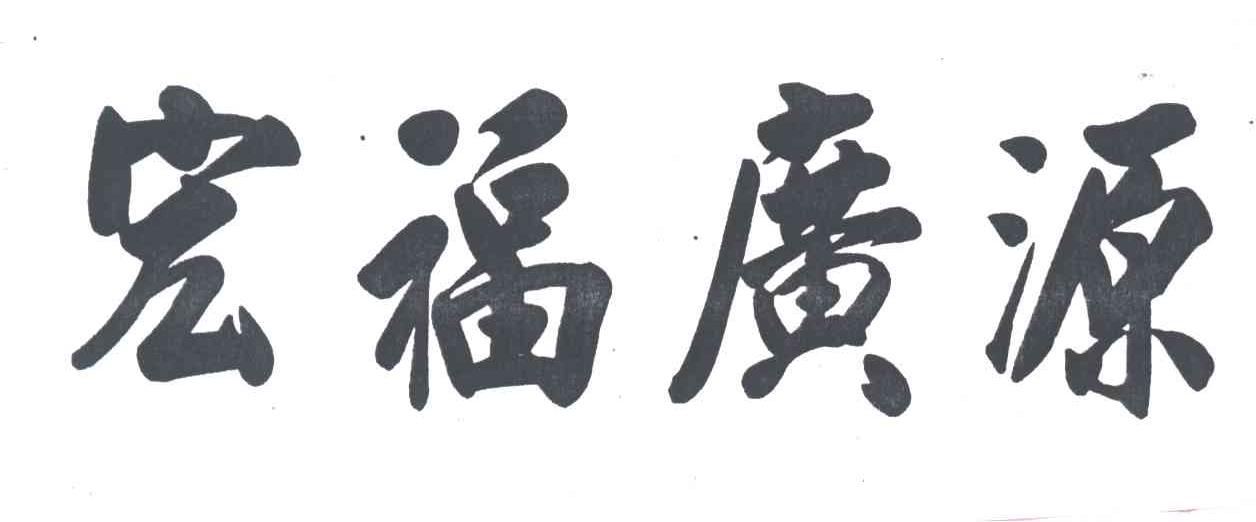 宏福廣源